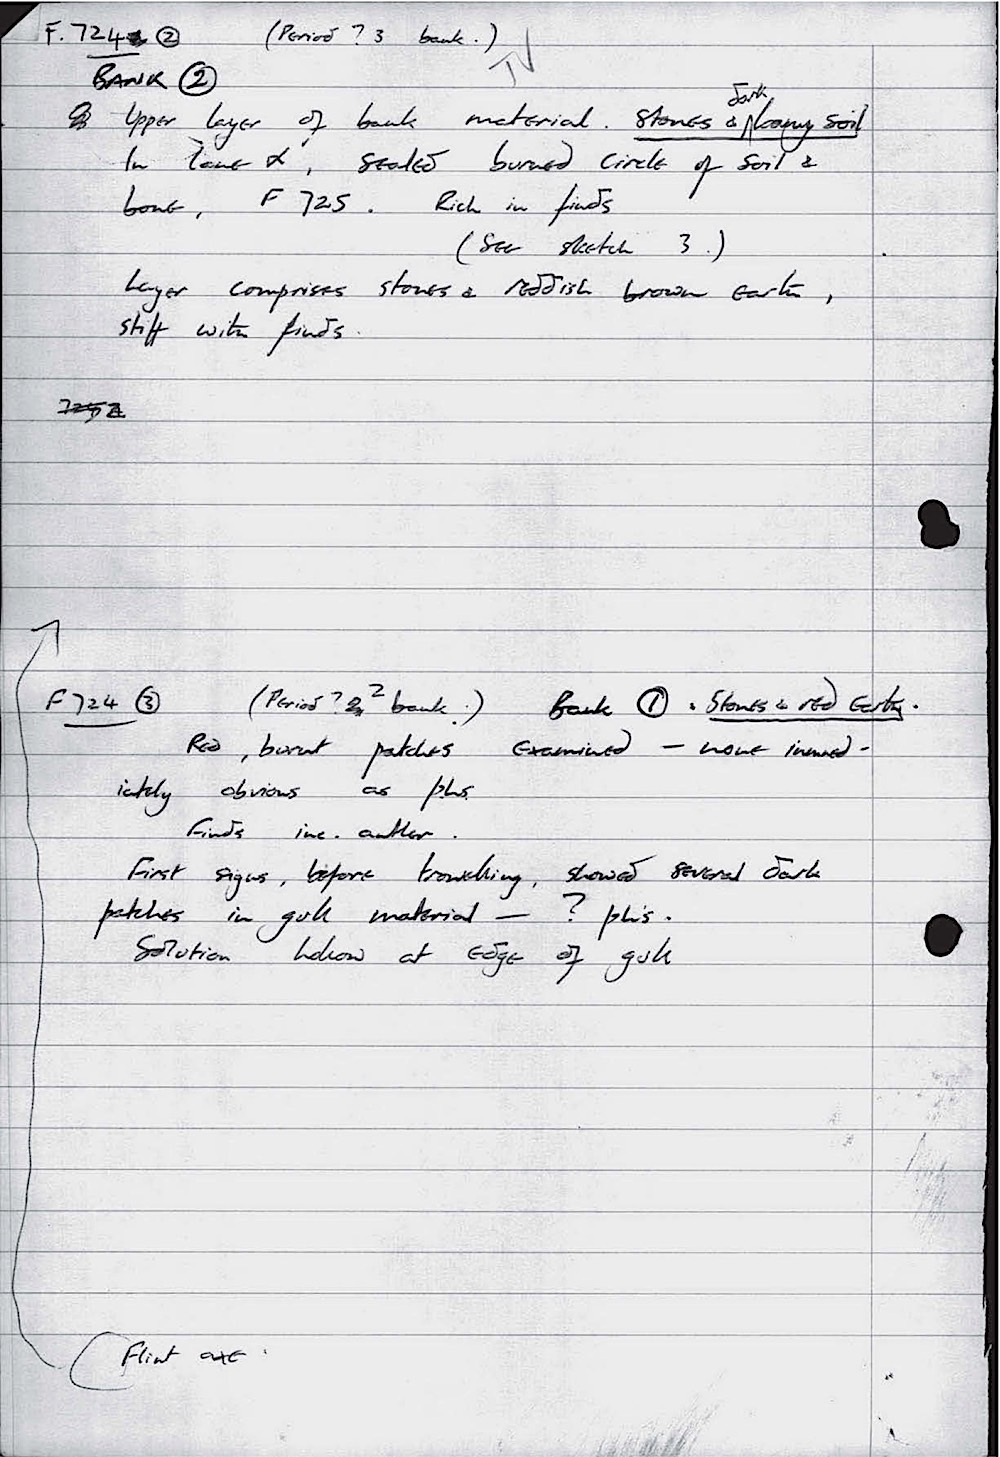 F. 724 ② (Period ? 3 bank.)
IV
BANK ②
Upper layer of bank material. Stones & dark loamy soil
In lane α, sealed burned circle of soil &
bone, F 725. Rich in finds
(See sketch 3.)
Layer comprises stones & reddish brown earth,
stiff with finds.
F 724 ③ (Period ? 2 bank.) Bank ①. Stones & red earth.
Red, burnt patches examined — none immed-
iately obvious as phs.
Finds inc. antler.
First signs, before trowelling, showed several dark
patches in gulk material — ? ph's.
Solution hollow at edge of gulk
Flint axe.